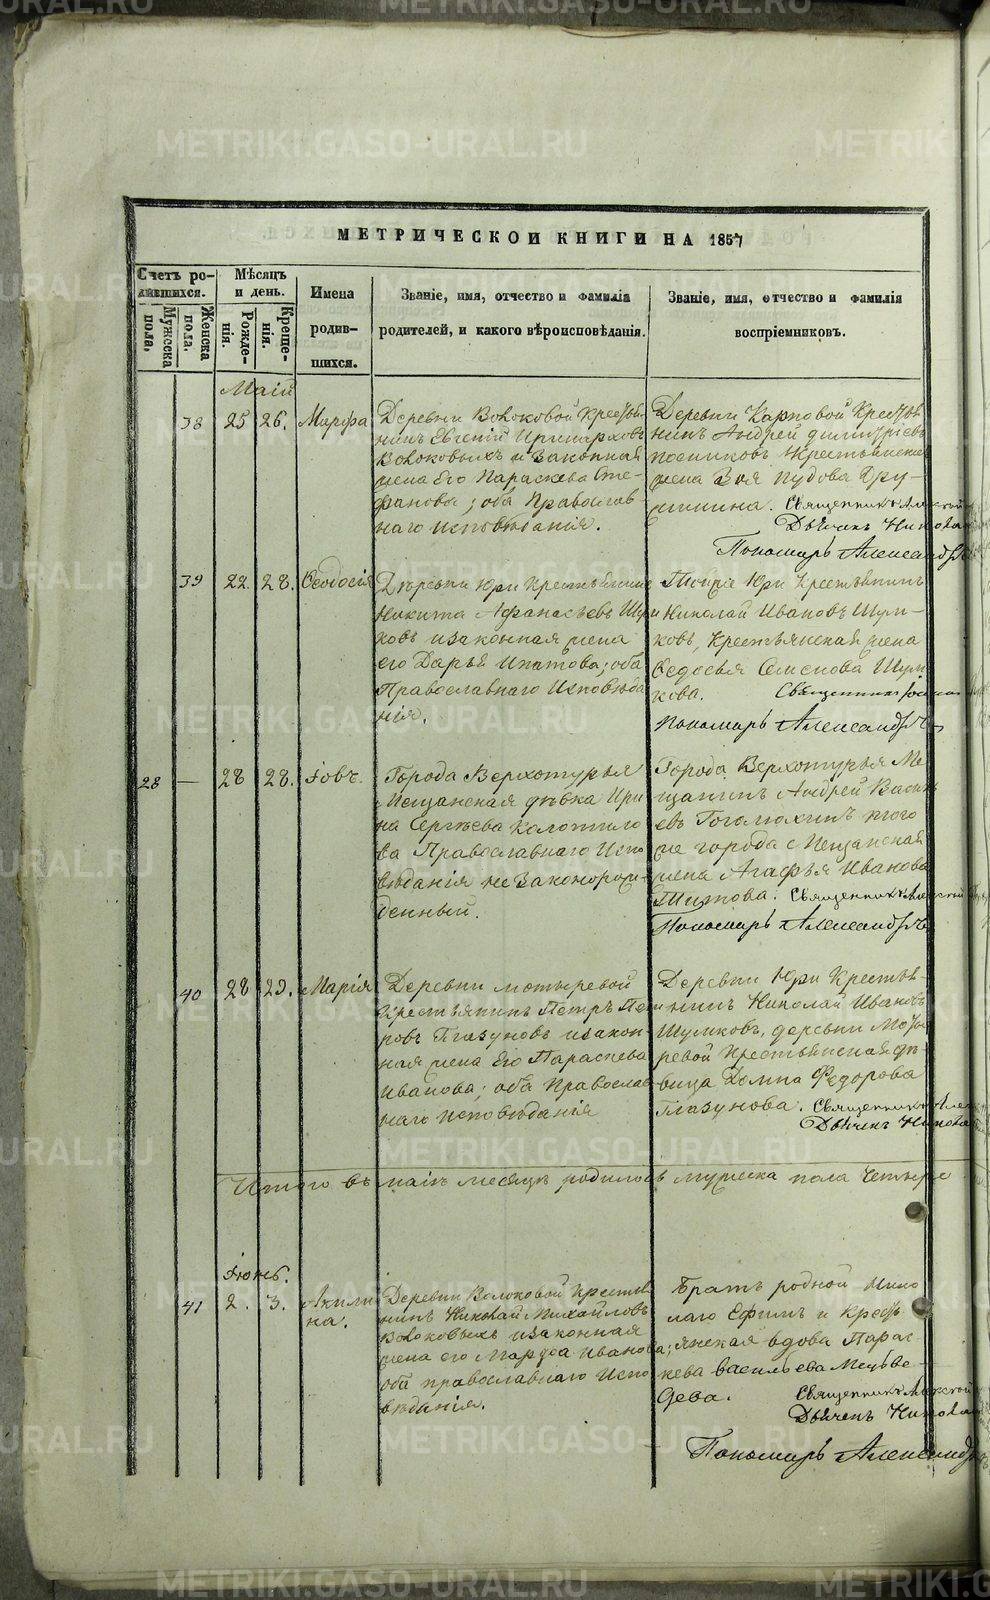 МЕТРИЧЕСКОЙ КНИГИ НА 1857
Счетъ ро-
дившихся.
Мужеска
пола.
Женска
пола.
Мѣсяцъ
и день.
Рожде-
нія.
Креще-
нія.
Имена
родив-
шихся.
Званіе, имя, отчество и фамилія
родителей, и какого вѣроисповѣданія.
Званіе, имя, отчество и фамилія
воспріемниковъ.
Маій
38 25 26. Марфа
Деревни Волоковой Крестья-
нинъ Евгеній
Волоковыхъ и законная
жена его Параскева Сте-
фанова; оба Православ
наго исповѣданія.
Деревни Карповой Крестья-
нинъ Андрей Димитріевъ
Постниковъ Крестьянская
жена Зоя Пудова Дру-
жинина. Священникъ
Дьячекъ
Пономарь Александръ
39 22. 28. Ѳеодосія
Деревни Юри Крестьянинъ
Никита Афанасьевъ Шум
ковъ и законная жена
его Дарья Ипатова; оба
Православнаго Исповѣда
нія.
Тойже Юри Крестьянинъ
Николай Ивановъ Шум-
ковъ, Крестьянская жена
Федосья Семенова Шум
кова. Священникъ
Пономарь Александръ
28 — 28 28. Іовъ.
Города Верхотурья
Мещанская дѣвка Ири
на Сергѣева
Православнаго Испо
вѣданія не законорож-
денный.
Города Верхотурья Ме
щанинъ Андрей Василь
евъ того
же города Мещанская
жена Агафья Иванова
Титова. Священникъ
Пономарь Александръ
40 28 29. Марія
Деревни Мотыревой
Крестьянинъ Петръ Пет
ровъ Глазуновъ и закон-
ная жена его Параскева
Иванова; оба Православ
наго исповѣданія
Деревни Юри Крестья-
нинъ Николай Ивановъ
Шумковъ, деревни Моты
ревой Крестьянская дѣ-
вица Домна Федорова
Глазунова. Священникъ
Дьячекъ
Итого въ маіѣ месяцѣ родилось мужеска пола четыре
Іюнь.
41 2. 3. Акили
на.
Деревни Волоковой Крестья
нинъ Николай Михайловъ
Волоковыхъ и законная
жена его Марфа Иванова;
оба православнаго Испо
вѣданія.
Братъ родной Нико
лаго Ефимъ и Крестъ
янская вдова Парас
кева Васильева Медве-
дева. Священникъ
Дьячекъ
Пономарь Александръ
METRIKI.GASO-URAL.RU